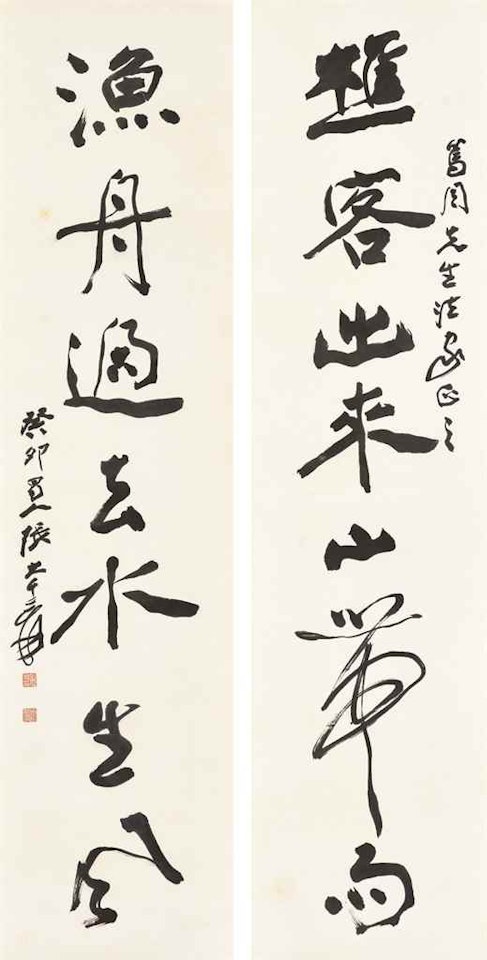 樵客出來山帶雨
篤周先生法家正之
漁舟過去水生風
癸卯蜀人張大千爰